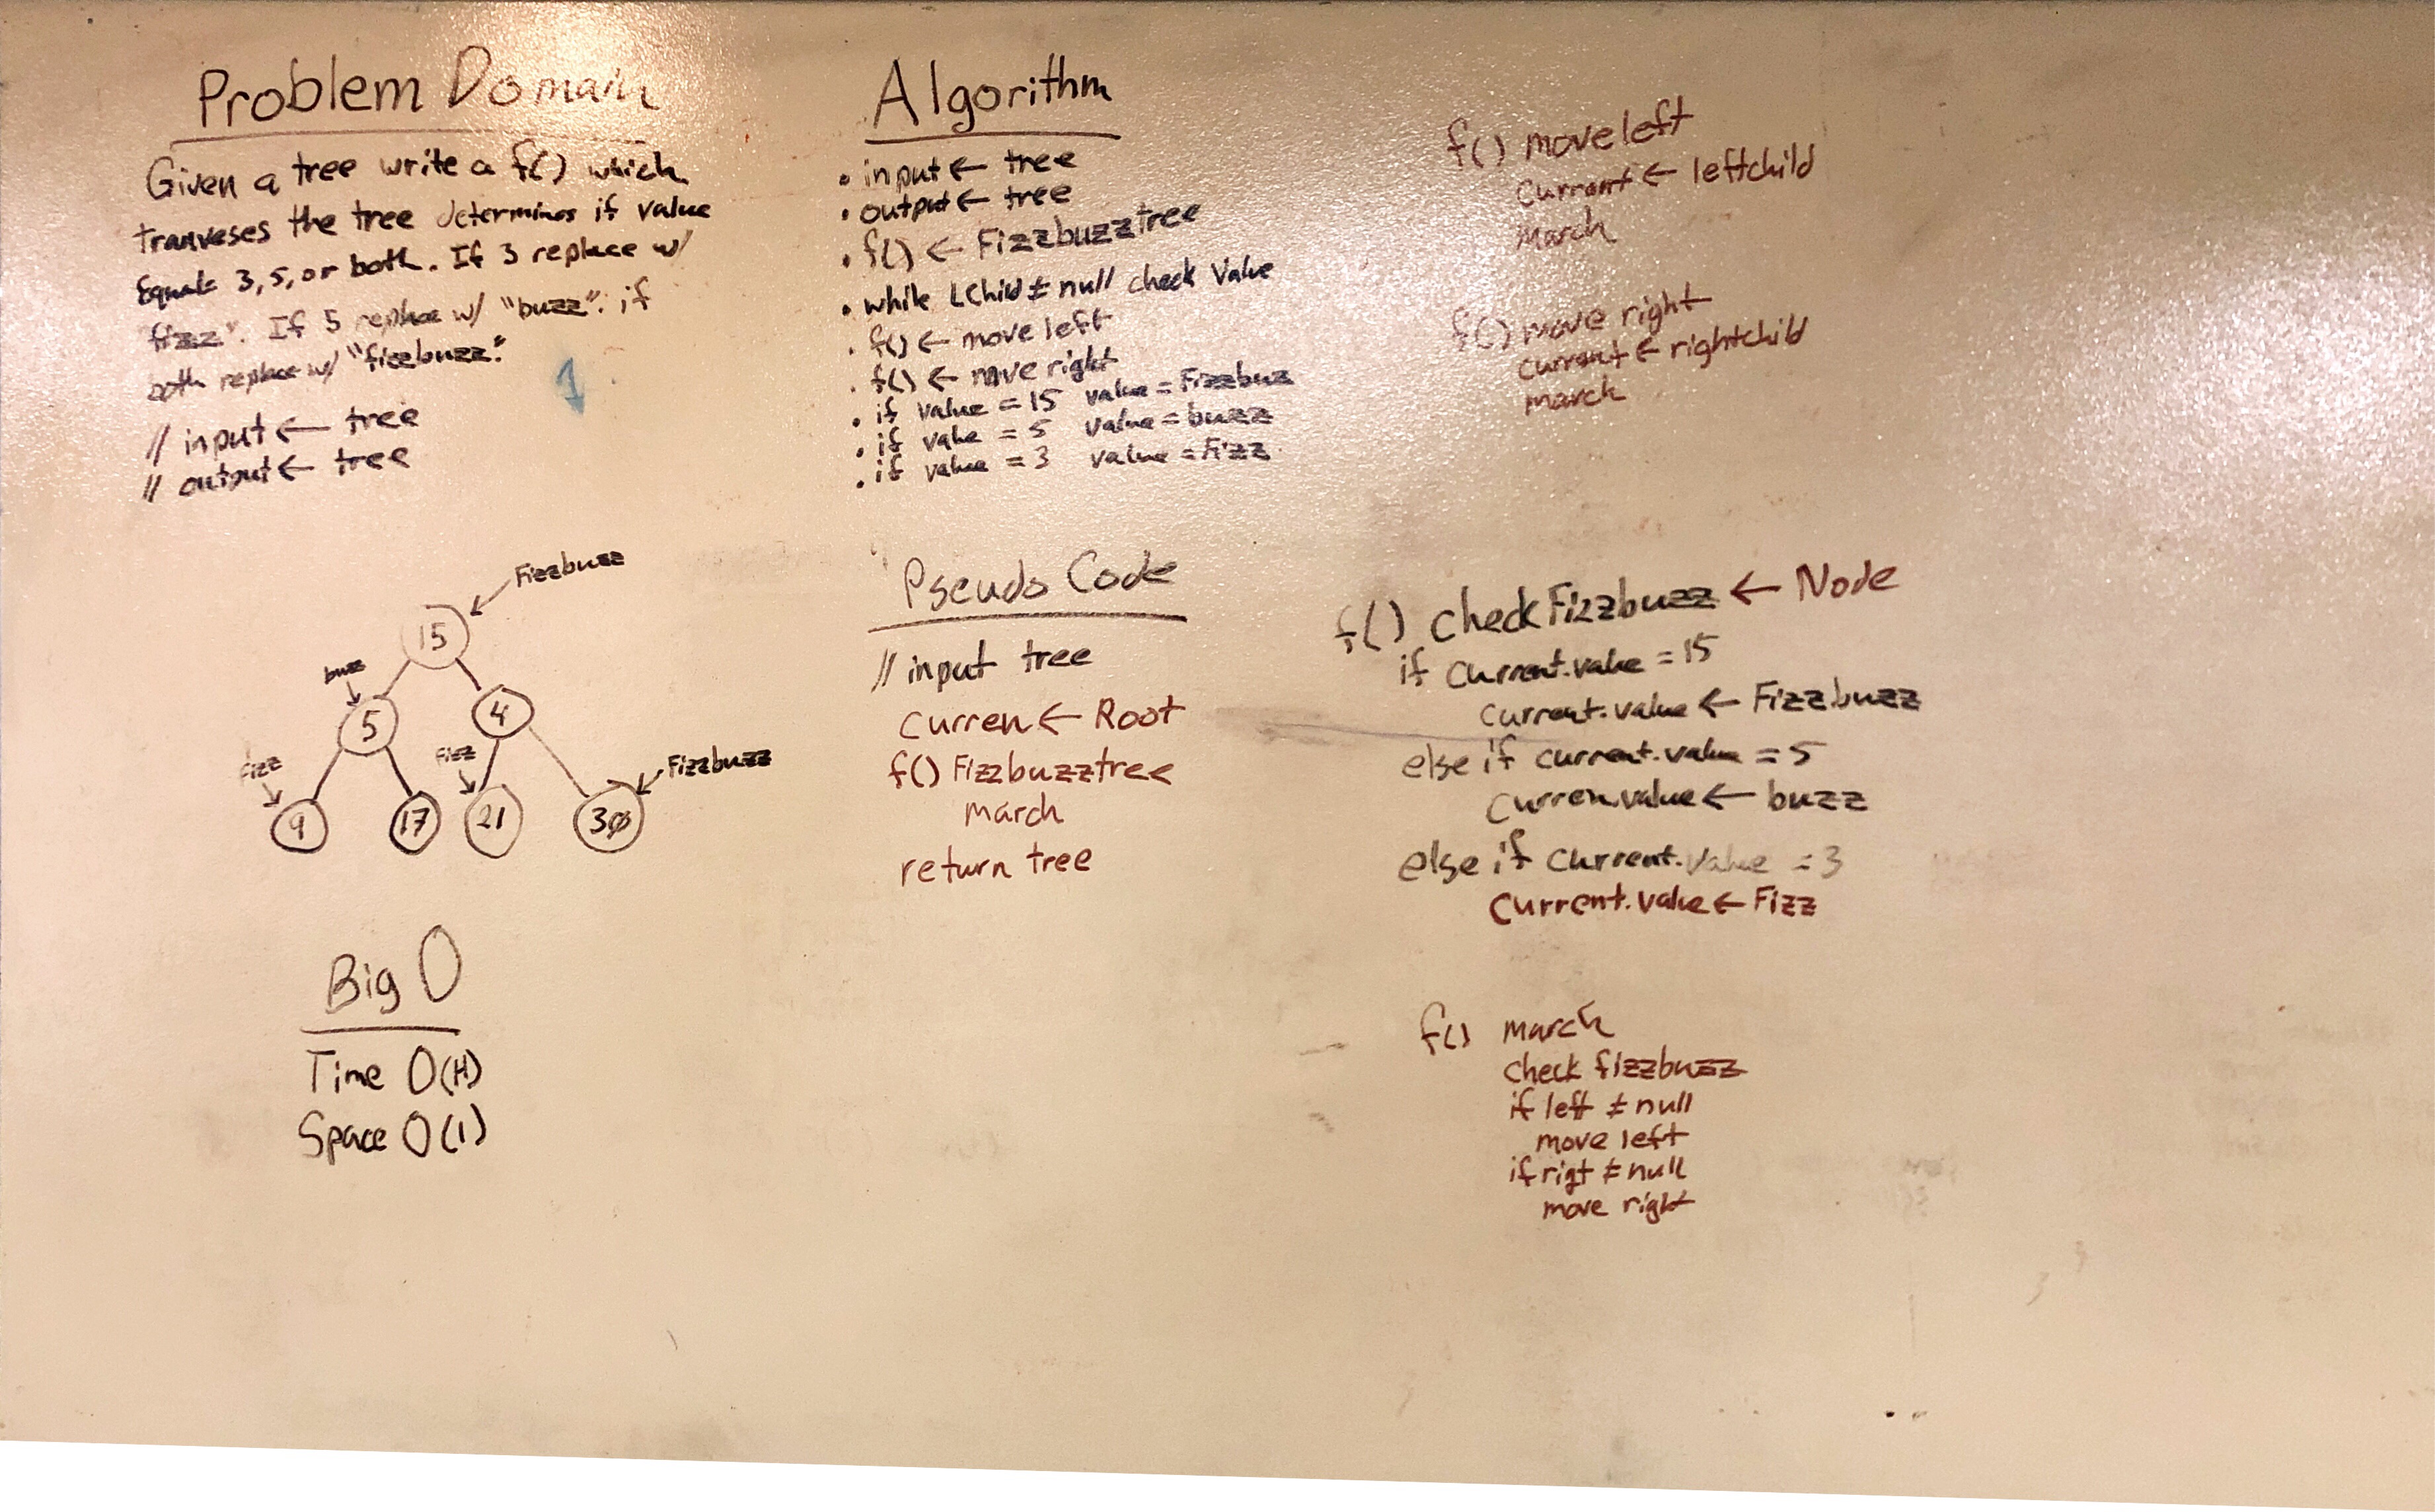 Problem Domain
Given a tree write a f() which
tranveses the tree determines if value
Equals 3, 5, or both. If 3 replace w/
"fizz". If 5 replace w/ "buzz". if
both replace w/ "fizzbuzz."
1
// input ← tree
// output ← tree
Fizzbuzz
15
buzz
5
4
Fizz
Fizz
Fizzbuzz
9
17
21
30
Big O
Time O(H)
Space O(1)
Algorithm
• input ← tree
• output ← tree
• f() ← Fizzbuzztree
• while LChild ≠ null check Value
• f() ← move left
• f() ← move right
• if value = 15 value = Fizzbuz
• if value = 5 value = buzz
• if value = 3 value = Fizz
Pseudo Code
// input tree
Curren ← Root
f() Fizzbuzztree
march
return tree
f() move left
Current ← leftchild
March
f() move right
current ← rightchild
march
f() check Fizzbuzz ← Node
if Current.value = 15
Current.value ← Fizzbuzz
else if current.value = 5
Curren.value ← buzz
else if Current.Value = 3
Current.Value ← Fizz
f() march
check fizzbuzz
if left ≠ null
move left
if rigt ≠ null
move right